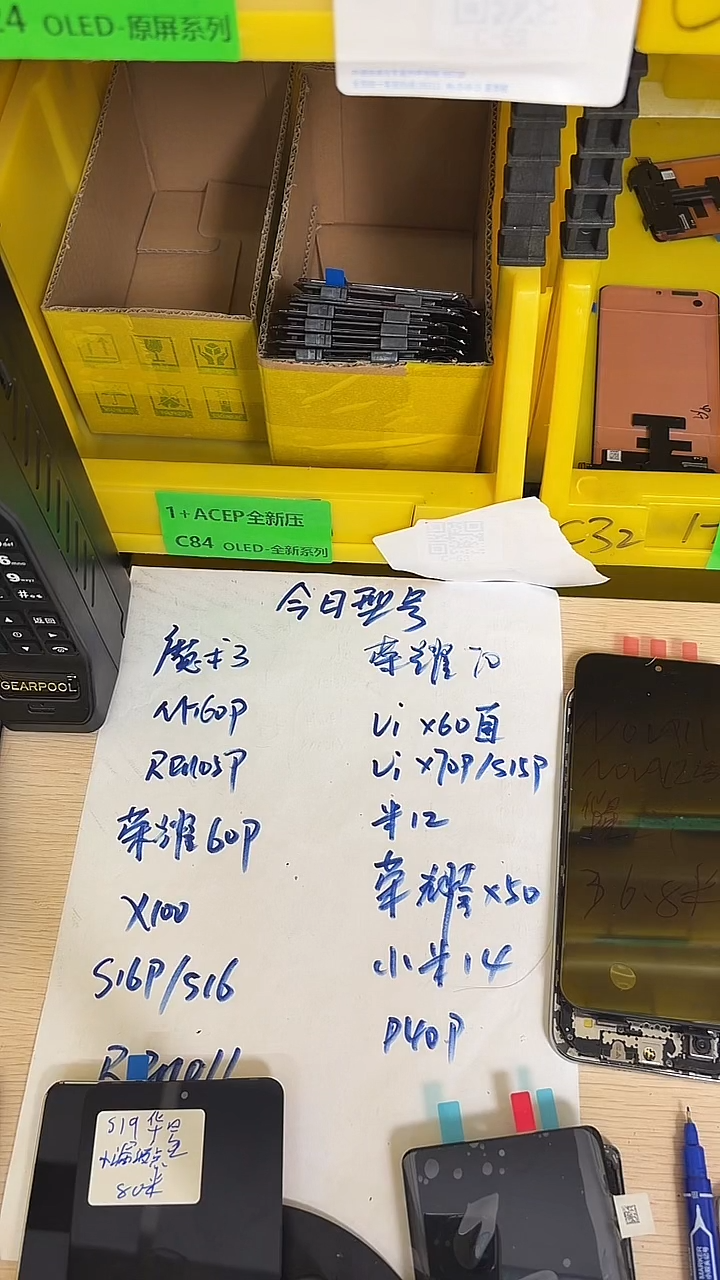 24 OLED-原屏系列
1+ACEP全新压
C84 OLED-全新系列
C32
GEARPOOL
今日型号
魔术3
荣耀70
Mi60P
Vi X60直
RENO5P
Vi X70P/S15P
荣耀60P
米12
X100
荣耀X50
S16P/S16
小米14
P40P
Reno11
S19 华星
80米
36.8米
MARKER